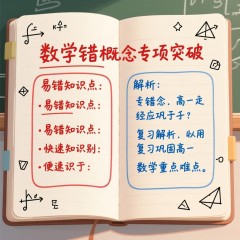 数学错概念专项突破
易错知识点:
·易错知识点:
·易错知识点:
·快速知识别:
·便速识于:
解析:
专错念,高一走
经应巩于子?
复习解析,以用
复习巩固高一
数学重点难点。